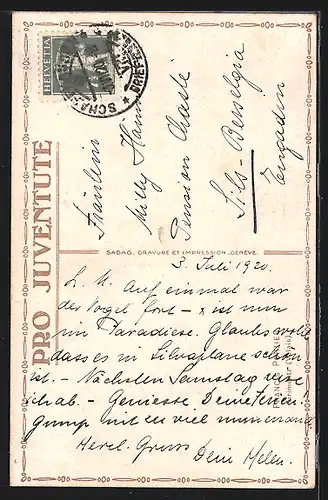 HELVETIA
PRO JUVENTUTE
Fräulein
Milly
Pension Chasté
Sils-Baselgia
Engadin
SADAG, GRAVURE ET IMPRESSION, GENÈVE
5. Juli 1920.
L. M. Auf einmal war
der Vogel fort - x ist nun
im Paradiese. Glaubs wohl
dass es in Silvaplana schön
ist. - Nächsten Samstag reise
ich ab. - Geniesse Deine Ferien
mit viel
Herzl. Gruss
Dein